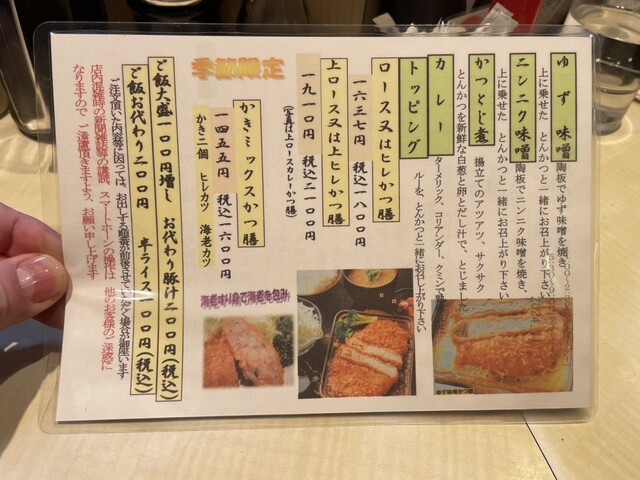 ゆず味噌
陶板でゆず味噌を焼き、
上に乗せた とんかつと一緒にお召上がり下さい
ニンニク味噌
陶板でニンニク味噌を焼き、
上に乗せた とんかつと一緒にお召上がり下さい
かつとじ煮
揚立てのアツアツ、サクサク
とんかつを新鮮な白葱と卵とだし汁で、とじました
カレー
ターメリック、コリアンダー、クミンで
トッピング
ルーを、とんかつと一緒にお召上がり下さい
ロース又はヒレかつ膳
一六三七円 税込一八〇〇円
上ロース又は上ヒレかつ膳
一九一〇円 税込二一〇〇円
(写真は上ロースカレーかつ膳)
季節限定
かきミックスかつ膳
一四五五円 税込一六〇〇円
かき二個 ヒレカツ 海老カツ
海老すり身で海老を包み
ゆず味噌かつ膳
ご飯大盛一〇〇円増し お代わり豚汁二〇〇円(税込)
ご飯お代わり二〇〇円 半ライス一〇〇円(税込)
ご注文頂いた内容等に因っては、お出しする順番が前後させて頂く場合が御座います
店内混雑時の新聞雑誌等の購読、スマートホーンの操作は 他のお客様のご迷惑に
なりますので、ご遠慮頂きますよう、お願い申し上げます